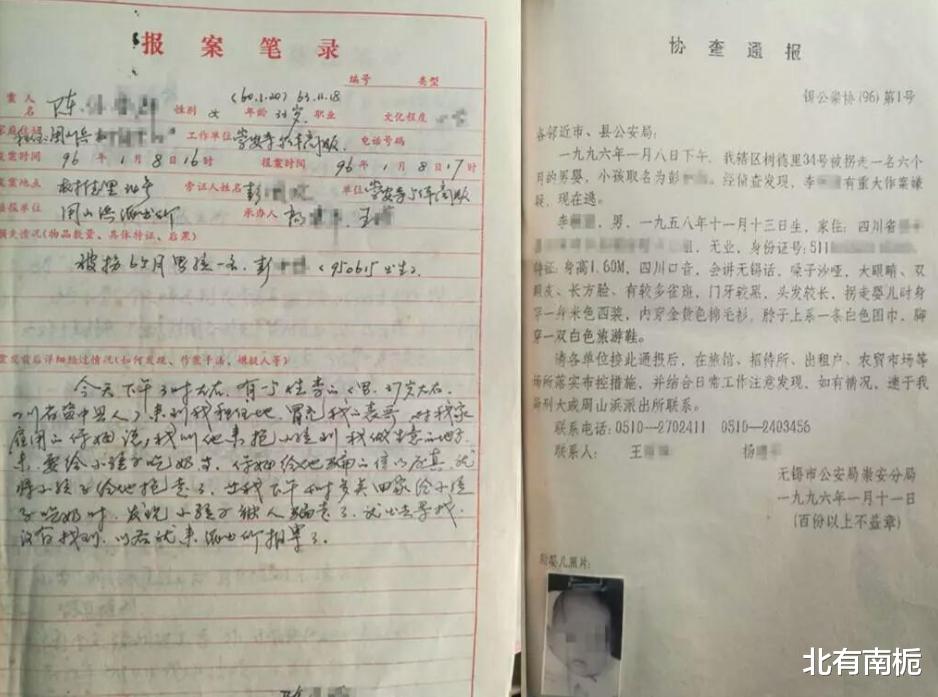 报案笔录
编号 类型
案人
名
陈
性别 女 (60.1.20) 63.11.18
年龄 33岁 职业 文化程度
工作单位 电话号码
案时间 96年1月8日16时 报案时间 96年1月8日17时
案地点 树德里34号 旁证人姓名 彭 单位
报单位 周山浜派出所 承办人 杨 王
损失情况(物品数量、具体特征、后果)
被拐6个月男孩一名,彭 (950615出生)。
案发前后详细经过情况(如何发现、作案手法、嫌疑人等)
今天下午3时左右,有一个姓李的男,37岁左右,
(四川省资中县人)来到我租住地,冒充我的表哥,对我家
雇用的保姆说,我叫他来抱小孩到我做生意的地方
来,要给小孩子吃奶,保姆给他骗的信以为真,就
将小孩子给他抱走了,当我下午4时多美回家给小孩
子吃奶时,发现小孩子被人骗走了,就出去寻找,
没有找到,以后就来派出所报案了。
协查通报
锡公崇协(96)第1号
各邻近市、县公安局:
一九九六年一月八日下午,我辖区树德里34号被拐走一名六个
月的男婴,小孩取名为彭 。经侦查发现,李 有重大作案嫌
疑,现在逃。
李 ,男,一九五八年十一月十三日生,家住:四川省
组,无业,身份证号:511
特征:身高1.60M,四川口音,会讲无锡话,嗓子沙哑,大眼睛、双
眼皮、长方脸、有较多雀斑,门牙较黑,头发较长,拐走婴儿时身
穿一件米色西装,内穿金黄色棉毛衫,脖子上系一条白色围巾,脚
穿一双白色旅游鞋。
请各单位接此通报后,在旅馆、招待所、出租户、农贸市场等
场所落实布控措施,并结合日常工作注意发现,如有情况,速于我
分局刑大或周山浜派出所联系。
联系电话:0510—2702411 0510—2403456
联系人: 王 杨
无锡市公安局崇安分局
一九九六年一月十一日
(百份以上不盖章)
附婴儿照片:
北有南栀